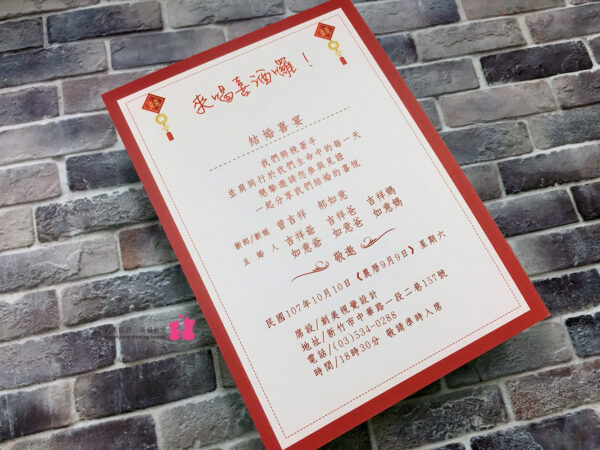 來喝喜酒囉！
結婚喜宴
我們將挽著手
並肩同行於我們生命中的每一天
摯邀請您參與見證
一起分享我們結婚的喜悅
新郎/新娘 曾吉祥 郝如意
主婚人 吉祥爺 吉祥爸 吉祥媽
如意爺 如意爸 如意媽
敬邀
民國107年10月10日《農曆9月9日》星期六
席設/創美視覺設計
地址/新竹市中華路一段二巷157號
電話/(03)534-0288
時間/18時30分 敬請準時入席